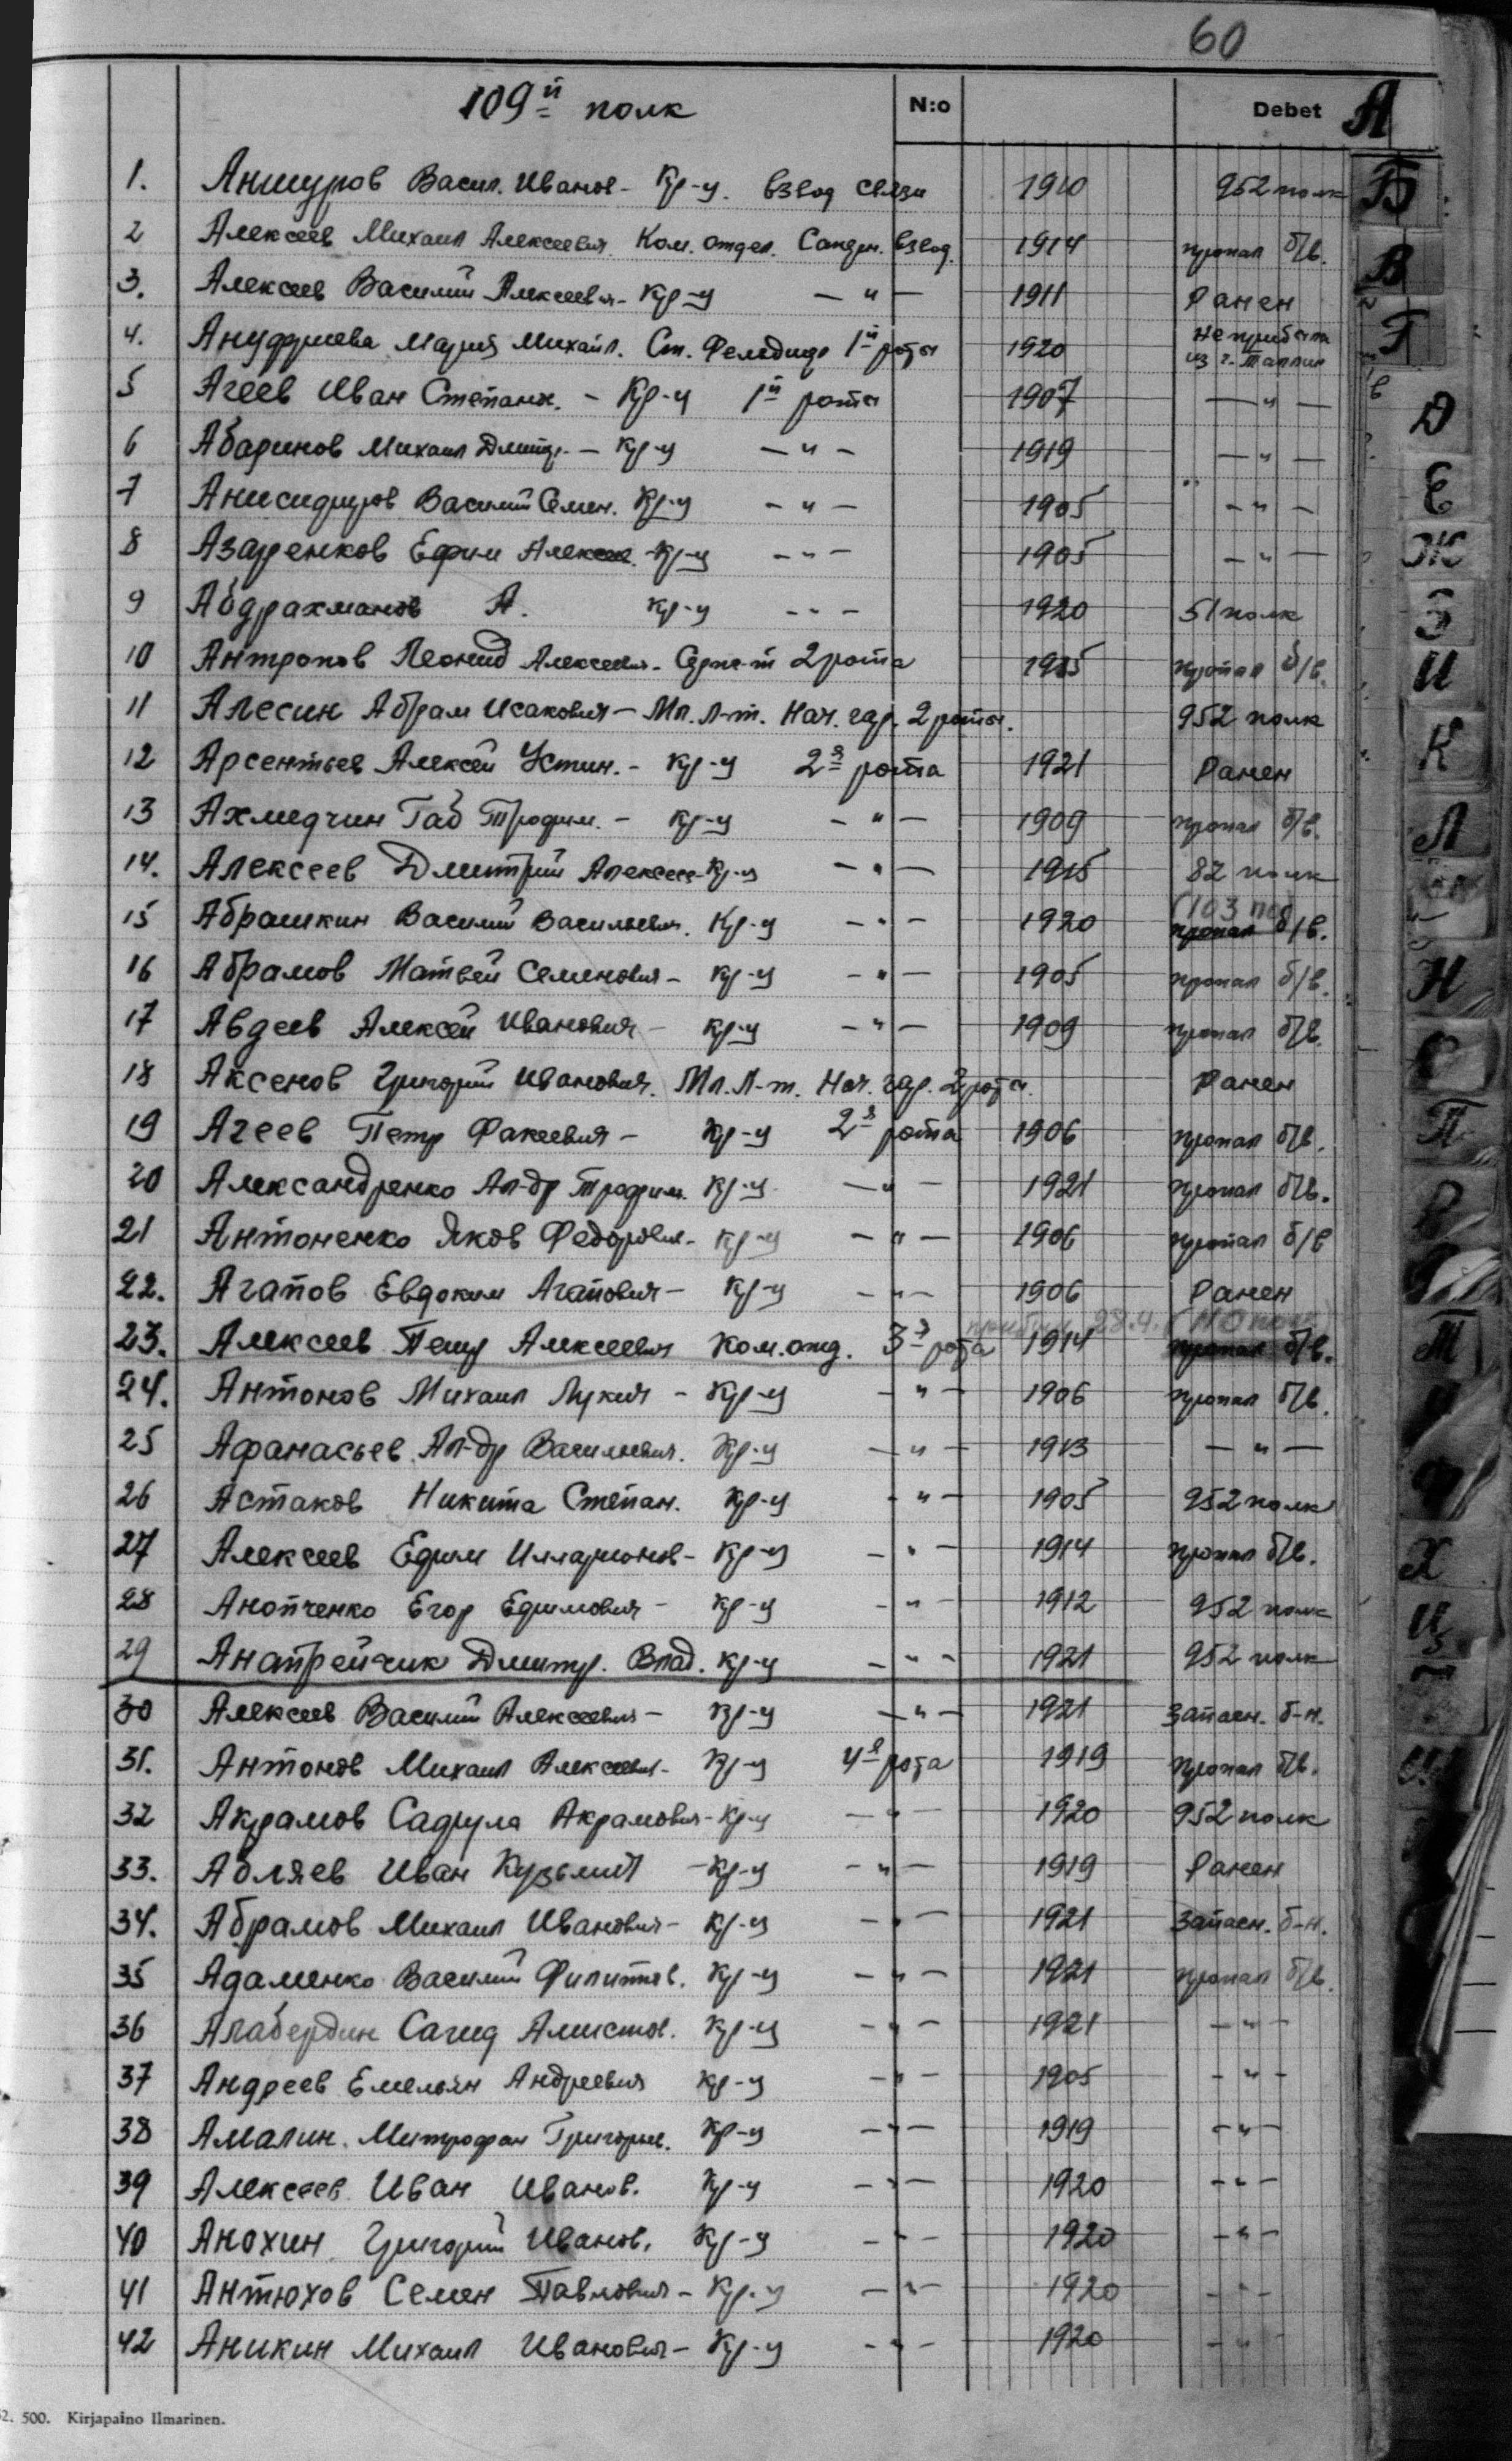 60
109й полк N:o Debet А
1. Аншуров Васил. Иванов- Кр-ц. взвод связи 1910 952 полк
2 Алексеев Михаил Алексеевич. Ком. отдел. взвод. 1914 пропал б/в.
3. Алексеев Василий Алексеевич- Кр-ц — " — 1911 Ранен
4. Ануфриева Мария Михайл. Ст. 1й роты 1920 не прибыла
из г. Таллин
5 Агеев Иван Степан. - Кр-ц 1й роты 1907 — " —
6 Абаринов Михаил Дмитр. - Кр-ц — " — 1919 — " —
7 Василий Семен. Кр-ц - " - 1905 - " -
8 Азаренков Ефим Алексеев. Кр-ц - " - 1905 - " -
9 Абдрахманов А. Кр-ц - " - 1920 51 полк
10 Антропов Леонид Алексеевич- Серж-т 2 рота 1915 пропал б/в.
11 Алесин Абрам Исакович - Мл. Л-т. Нач. 2 роты. 952 полк
12 Арсентьев Алексей Устин. - Кр-ц 2я рота 1921 Ранен
13 Ахмедчин Габ - Кр-ц - " - 1909 пропал б/в.
14. Алексеев Дмитрий Алексеев- Кр-ц - " - 1915 82 полк
15 Абрашкин Василий Васильевич. Кр-ц - " - 1920 пропал б/в.
16 Абрамов Матвей Семенович - Кр-ц - " - 1905 пропал б/в.
17 Авдеев Алексей Иванович - Кр-ц - " - 1909 пропал б/в.
18 Аксенов Григорий Иванович. Мл. Л-т. Нач. 2 роты. Ранен
19 Агеев Петр Факеевич - Кр-ц 2я рота 1906 пропал б/в.
20 Александренко Ал-др Трофим. Кр-ц - " - 1921 пропал б/в.
21 Антоненко Яков Федорович- Кр-ц - " - 1906 пропал б/в
22. Агапов Евдоким Агапович- Кр-ц - " - 1906 Ранен
прибыл 28.4. (110 полк)
23. Алексеев Петр Алексеевич Ком. отд. 3я рота 1914 пропал б/в.
24. Антонов Михаил Лукич - Кр-ц - " - 1906 пропал б/в.
25 Афанасьев Ал-др Васильевич. Кр-ц - " - 1913 — " —
26 Астаков Никита Степан. Кр-ц - " - 1905 952 полк
27 Алексеев Ефим Илларионов- Кр-ц - " - 1914 пропал б/в.
28 Анопченко Егор Ефимович - Кр-ц - " - 1912 952 полк
29 Анапрейчик Дмитр. Влад. Кр-ц - " - 1921 952 полк
30 Алексеев Василий Алексеевич - Кр-ц - " - 1921 Запасн. б-н.
31. Антонов Михаил Алексеевич- Кр-ц 4я рота 1919 пропал б/в.
32 Акрамов Садрула Акрамович- Кр-ц - " - 1920 952 полк
33. Абляев Иван Кузьмич - Кр-ц - " - 1919 Ранен
34. Абрамов Михаил Иванович- Кр-ц - " - 1921 Запасн. б-н.
35 Адаменко Василий Филиппов. Кр-ц - " - 1921 пропал б/в.
36 Алабердин Сагид Кр-ц - " - 1921 - " -
37 Андреев Емельян Андреевич Кр-ц - " - 1905 - " -
38 Амалин. Митрофан Григорьев. Кр-ц - " - 1919 - " -
39 Алексеев Иван Иванов. Кр-ц - " - 1920 - " -
40 Анохин Григорий Иванов. Кр-ц - " - 1920 - " -
41 Антюхов Семен Павлович - Кр-ц - " - 1920 - " -
42 Аникин Михаил Иванович- Кр-ц - " - 1920 - " -
500. Kirjapaino Ilmarinen.
Б
В
Г
Д
Е
Ж
З
И
К
Л
Н
О
П
Р
Т
Х
Ц